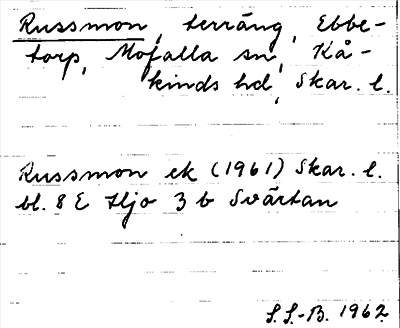 Russmon, terräng, Ebbe-
torp, Mofalla sn, Kå-
kinds hd, Skar. l.
Russmon ek (1961) Skar. l.
bl. 8 E Hjo 3 b Svärtan
S.S.-B. 1962